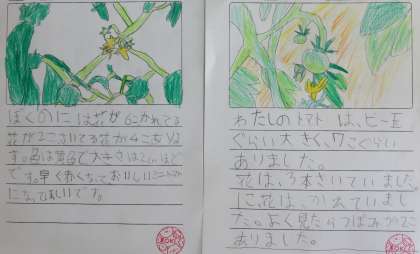 ぼくのには花が6こかれてる
花が2こさいてる花が4こあり
す。色は黄色で大きさは2cmほど
です。早く赤くなって、おいしいミニトマト
になってほしいです。
わたしのトマトは、ビー玉
ぐらい大きく、7こぐらい
ありました。
花は、3本さいていました
に花は、かれていまし
た。よく見たらつぼみが
ありました。